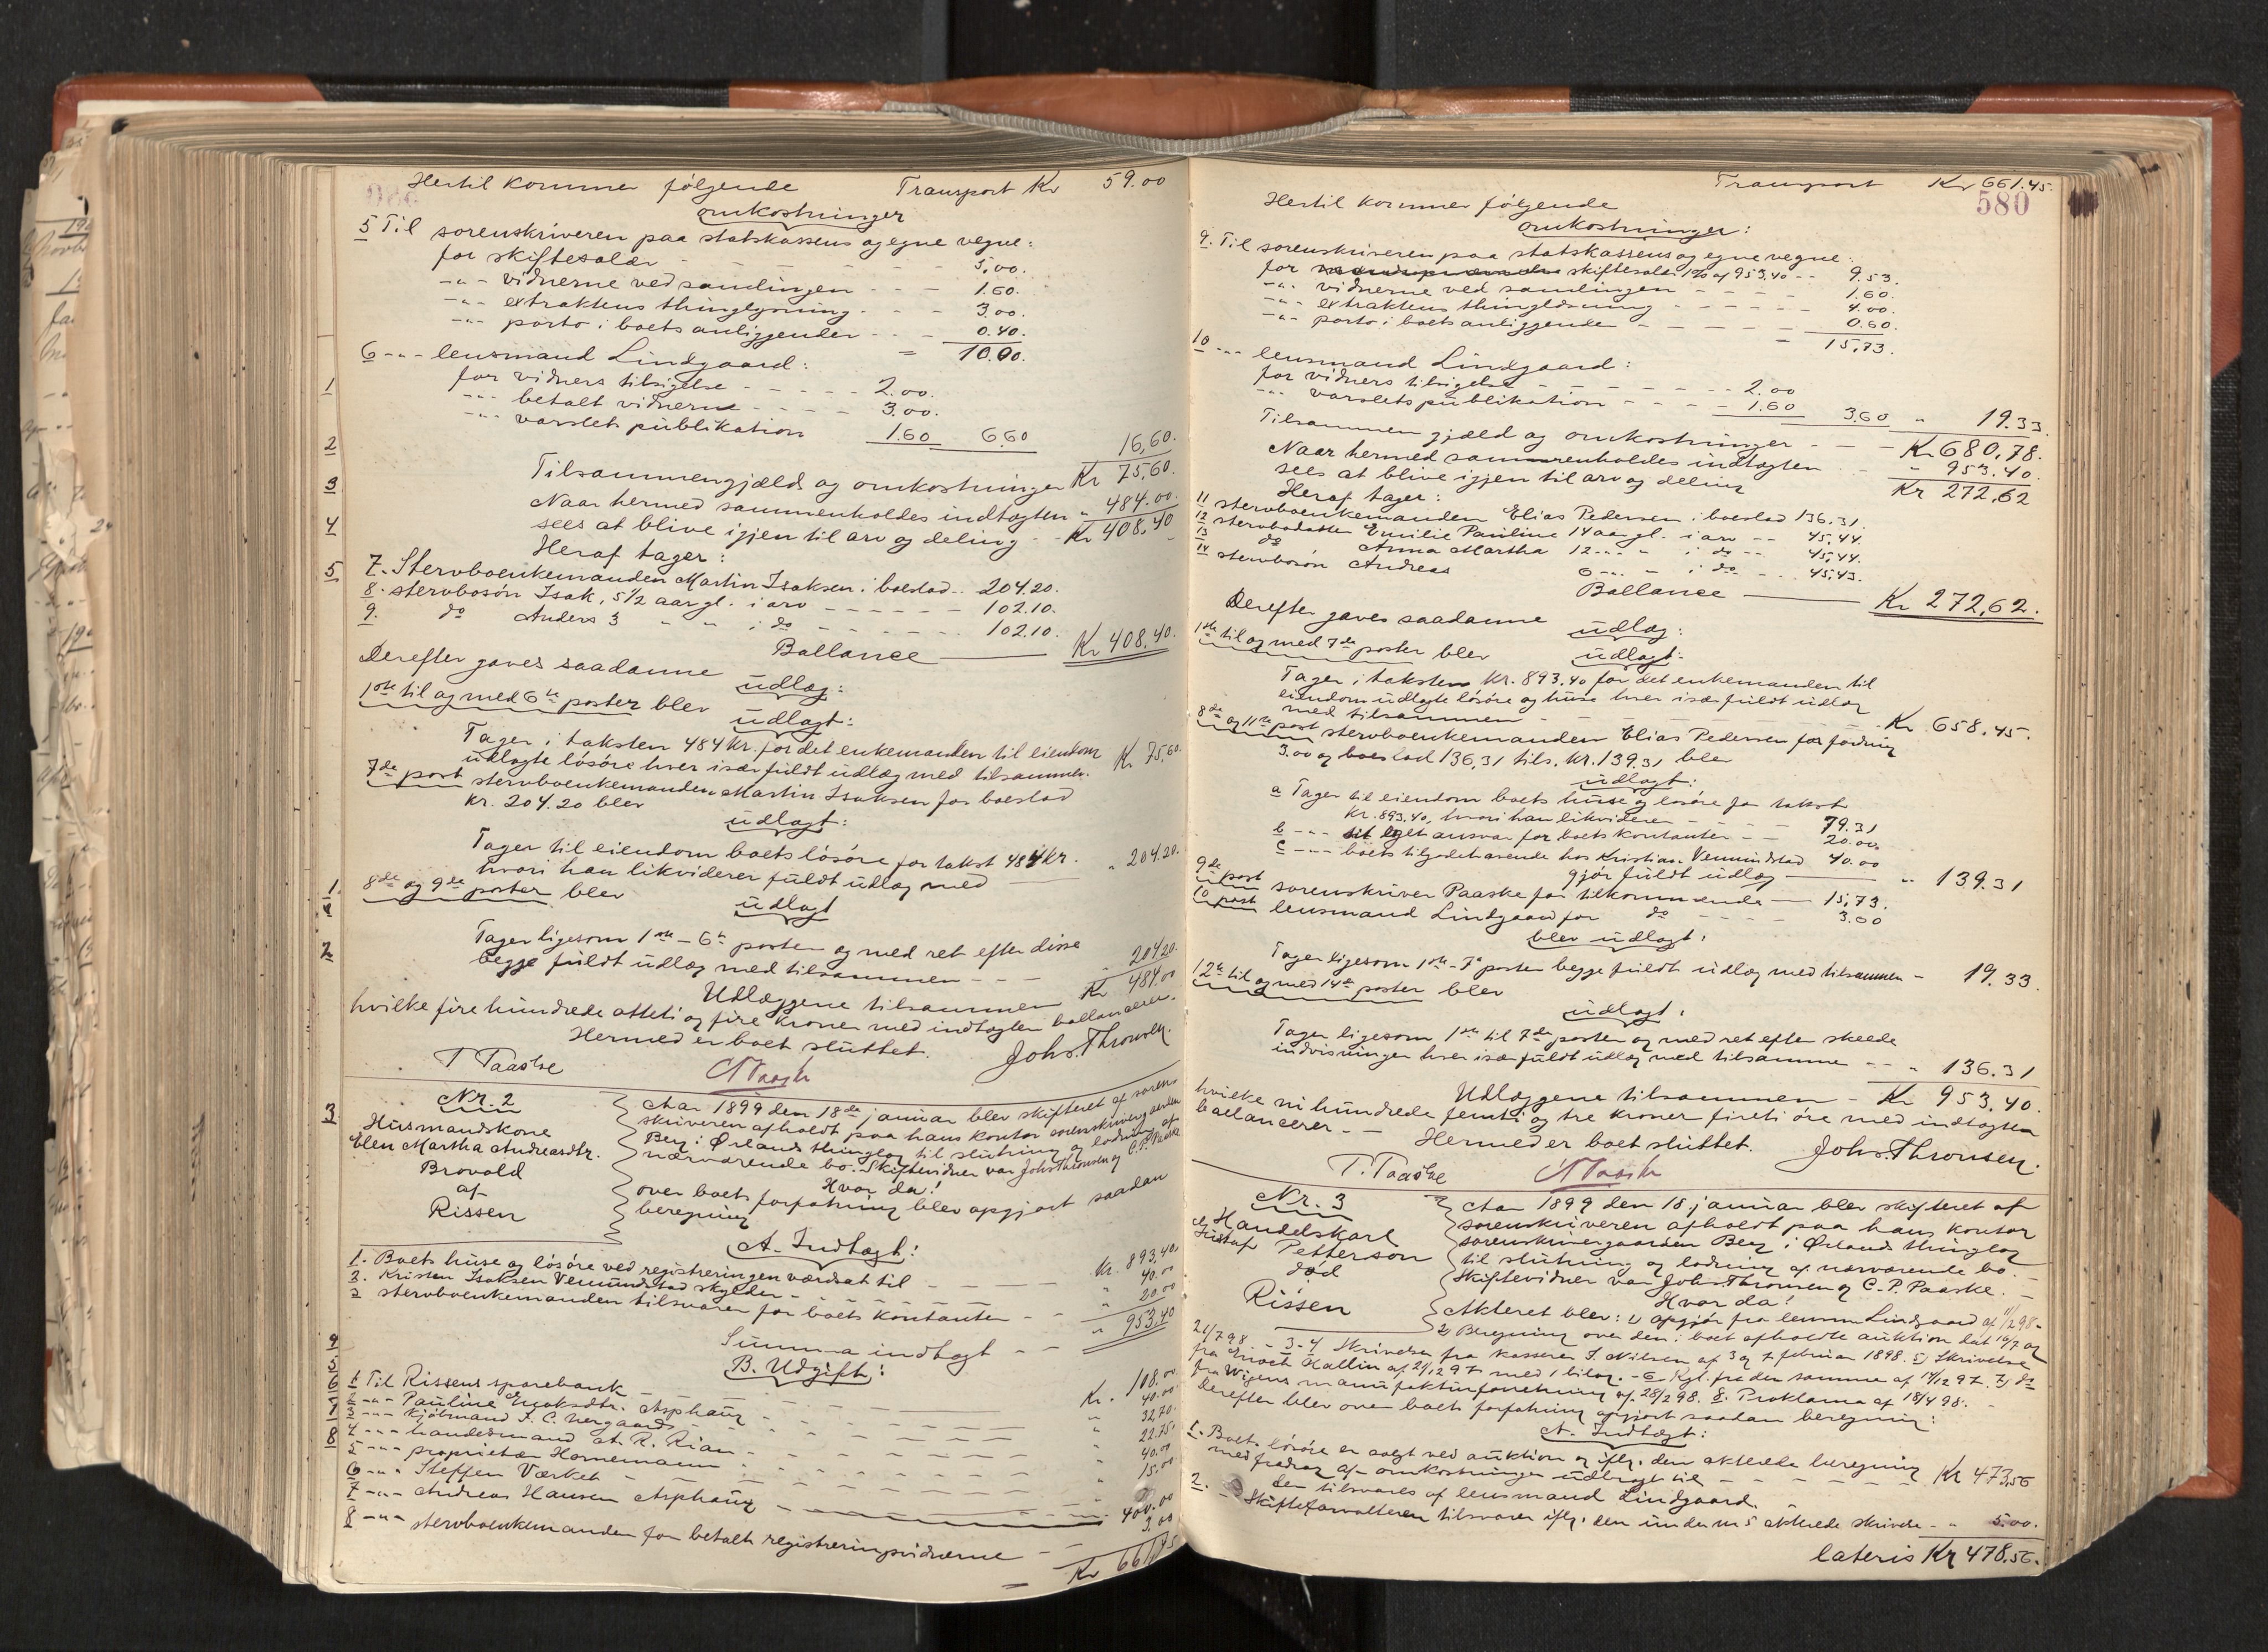 Hertil kommer følgende Transport Kr 59.00
omkostninger
5 Til sorenskriveren paa statskassens og egne vegne:
for skiftesalær - - - 5,00.
-"- vidnerne ved samlingen - - - 1.60.
-"- extraktens thinglysning - - - 3.00.
-"- porto i boets anliggender - - 0.40.
= 10.00.
6 -"- lensmand Lindgaard:
for vidners tilsigelse - - - - 2.00.
-"- betalt vidnerne - - - - 3.00.
-"- varslets publikation 1.60 6.60 16,60.
Tilsammen gjæld og omkostninger Kr 75,60.
Naar hermed sammenholdes indtægten " 484.00.
sees at blive igjen til arv og deling - - Kr 408,40
Heraf tager:
7. Stervboenkemanden Martin Isaksen i boeslod - - 204.20.
8. stervbosøn Isak, 5 1/2 aar gl. i arv - - - - 102.10.
9. do Anders 3 " " i do - - - - 102.10.
Ballance Kr 408.40.
Derefter gaves saadanne
udlæg:
1ste til og med 6te poster blev
udlagt:
Tager i taksten 484 kr. for det enkemanden til eiendom
udlagte løsøre hver især fuldt udlæg med tilsammen. Kr 75,60.
7de post stervboenkemanden Martin Isaksen for boeslod
kr. 204.20 blev
udlagt:
Tager til eiendom boets løsøre for takst 484 kr.
hvori han likviderer fuldt udlæg med " 204.20.
8de og 9de poster blev
udlagt
Tager ligesom 1ste - 6te poster og med ret efter disse
begge fuldt udlæg med tilsammen - - - 204.20.
Udlæggene tilsammen Kr 484.00
hvilke fire hundrede otteti og fire kroner med indtægten ballancerer.
Hermed er boet sluttet.
T Paaske Johs. Thronsen
Nr. 2
Husmandskone
Elen Martha Andreasdtr.
Brovold
af
Rissen
Aar 1899 den 18de januar blev skifteret af soren-
skriveren afholdt paa hans kontor sorenskrivergaarden
Berg i Ørlands thinglag til slutning og lodning af
nærværende bo. Skiftevidner var Johs Thronsen og C. P. Paaske
Hvor da!
over boets forfatning blev opgjort saadan
beregning
A. Indtægt:
1. Boets huse og løsøre ved registreringen værdsat til - - - kr. 893,40.
2. Kristen Isaksen Vemundstad skylder - - - " 40.00
3 stervboenkemanden tilsvarer for boets kontanter - - " 20.00
Summa indtægt - - " 953,40
B. Udgift:
1 Til Rissens sparebank - - - Kr. 108.00
2 -"- Pauline Enoksdtr. Asphaug - - - " 40.00
3 -"- kjøbmand F. C. Nergaard - - - " 32,70.
4 -"- handelsmand at. R. Rian - - - " 22.75.
5 -"- proprietær Hornemann - - - " 40.00
6 -"- Steffen Værket - - - " 15.00
7 -"- Andreas Hansen Asphaug - - - 400.00
8 -"- stervboenkemanden for betalt registreringsvidnerne - - 3.00
= Kr 661,45
Transport Kr 661.45.
580
Hertil kommer følgende
omkostninger:
9. Til sorenskriveren paa statskassens og egne vegne:
for skiftesalær 1% af 953,40 - - 9.53.
-"- vidnerne ved samlingen - - - 1.60.
-"- extraktens thinglæsning - - - 4.00.
-"- porto i boets anliggender - - - 0.60.
= 15,73.
10 -"- lensmand Lindgaard:
for vidners tilsigelse - - - 2.00
-"- varslets publikation - - - 1.60 3.60 " 19.33.
Tilsammen gjæld og omkostninger - - - Kr 680,78.
Naar hermed sammenholdes indtægten - " 953.40.
sees at blive igjen til arv og deling Kr 272,62
Heraf tager:
11 stervboenkemanden Elias Pedersen i boeslod 136,31.
12 stervbodatter Emilie Pauline 14 aar gl. i arv - - 45,44.
13 do Anna Martha 12 -"- " i do - - 45,44.
14 stervbosøn Andreas 6 -"- " i do - - 45,43.
Ballance Kr 272,62.
Derefter gaves saadanne
udlæg:
1ste til og med 7de poster blev
udlagt:
Tager i taksten kr. 893.40 for det enkemanden til
eiendom udlagte løsøre og huse hver især fuldt udlæg
med tilsammen - - - Kr 658,45.
8de og 11te post stervboenkemanden Elias Pedersen for fordring
3.00 og boeslod 136,31 tils. kr. 139.31 blev
udlagt:
a Tager til eiendom boets huse og løsøre for takst
kr. 893.40, hvori han likviderer - - - 79.31
b -"- til eget ansvar for boets kontanter - - 20.00
c -"- boets tilgodehavende hos Kristian Vemundstad 40.00
gjør fuldt udlæg " 139.31
9de post sorenskriver Paaske for tilkommende - 15,73.
10 post lensmand Lindgaard for do - - - 3.60
blev udlagt:
Tager ligesom 1ste - 7de poster begge fuldt udlæg med tilsammen - 19.33.
12te til og med 14de poster blev
udlagt:
Tager ligesom 1ste til 7de poster og med ret efter skeede
indvisninger hver især fuldt udlæg med tilsamme - - " 136.31
Udlæggene tilsammen - Kr 953,40.
hvilke ni hundrede femti og tre kroner fireti øre med indtægten
ballancerer. - Hermed er boet sluttet.
T. Paaske Johs. Thronsen.
Nr. 3
Handelskarl
Gustaf Petterson
død
Rissen
Aar 1899 den 18 januar blev skifteret af
sorenskriveren afholdt paa hans kontor
sorenskrivergaarden Berg i Ørlands thinglag
til slutning og lodning af nærværende bo. -
Skiftevidner var Johs Thronsen og C. P. Paaske. -
Hvor da!
Akteret blev: 1) opgjør fra lensm Lindgaard af 11/2 98.
2) Beregning over den i boet afholdte auktion dat 16/7 og
21/7 98. - 3-4 Skrivelser fra kasserer J. Nilsen af 3 og 7 februar 1898. 5) Skrivelse
fra Enoch Hallin af 21/12 97 med 1 bilag. - 6. Rgl. fra den samme af 14/12 97. 7) do
fra Wigens manufakturforretning af 28/2 98. 8. Proklama af 18/4 98. -
Derefter blev over boets forfatning opgjort saadan beregning:
A. Indtægt:
1. Boets løsøre er solgt ved auktion og iflg. den akterede beregning
med fradrag af omkostninger udbragt til - - - Kr 473,56
den tilsvares af lensmand Lindgaard.
2. - Skifteforvalteren tilsvarer iflg. den under no 5 akterede skrivelse - " 5.00.
lateris Kr 478.56.